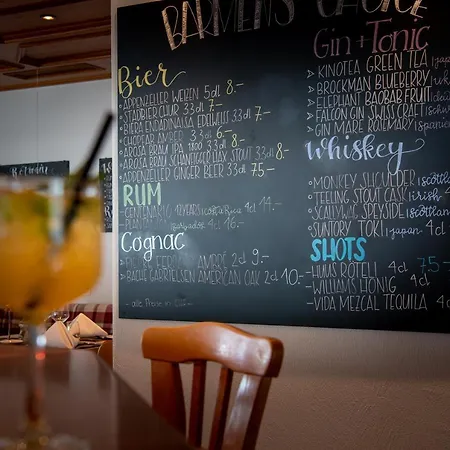 BARMEN'S CHOICE
Bier
APPENZELLER WEIZEN 5dl 8.-
STADTBIER CHUR 33dl 7.-
BIERA ENGIADINAISA EDELWEISS 33dl 7.-
CHOPFAB DRAFT 33dl 6.-
AROSA BRÄU IPA 1800 33dl 8.-
AROSA BRÄU SCHANFIGGER DARK STOUT 33dl 8.-
APPENZELLER GINGER BEER 33dl 7.5-
RUM
12YEARS | COSTA RICA 4cl 14.-
4cl 16.-
Cognac
PIERRE FERRAND AMBRÉ 2cl 9.-
BACHE GABRIELSEN AMERICAN OAK 2cl 10.-
- alle Preise in CHF -
Gin + Tonic
KINOTEA GREEN TEA
BROCKMAN BLUEBERRY
ELEPHANT BAOBAB FRUIT
FALCON GIN SWISS CRAFT | SCHW
GIN MARE ROSEMARY | SPANIEN
Whiskey
MONKEY SHOULDER | SCOTLAND
TEELING STOUT CASK | IRISH 4
SCALLYWAG SPEYSIDE | SCOTLAND
SUNTORY TOKI | JAPAN 4cl
SHOTS
HUUS RÖTELI 4cl 7.5
WILLIAMS HONIG 4cl
VIDA MEZCAL TEQUILA 4cl